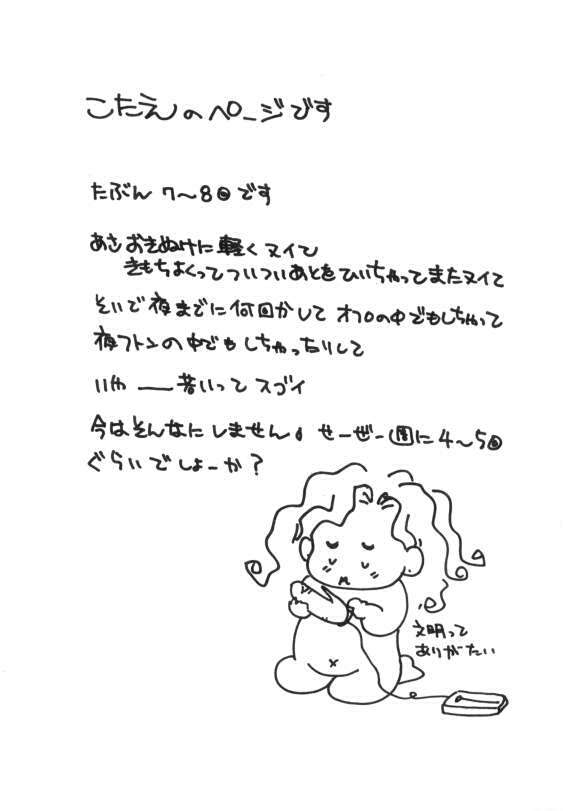 こたえのページです
たぶん 7〜8回です
あさおきぬけに軽くヌイて
きもちよくってついついあとをひいちゃってまたヌイて
そいで夜までに何回かして オフロの中でもしちゃって
夜フトンの中でもしちゃったりして
いや――若いって スゴイ
今はそんなにしません。せーぜー週に4〜5回
ぐらいでしょーか?
文明って
ありがたい